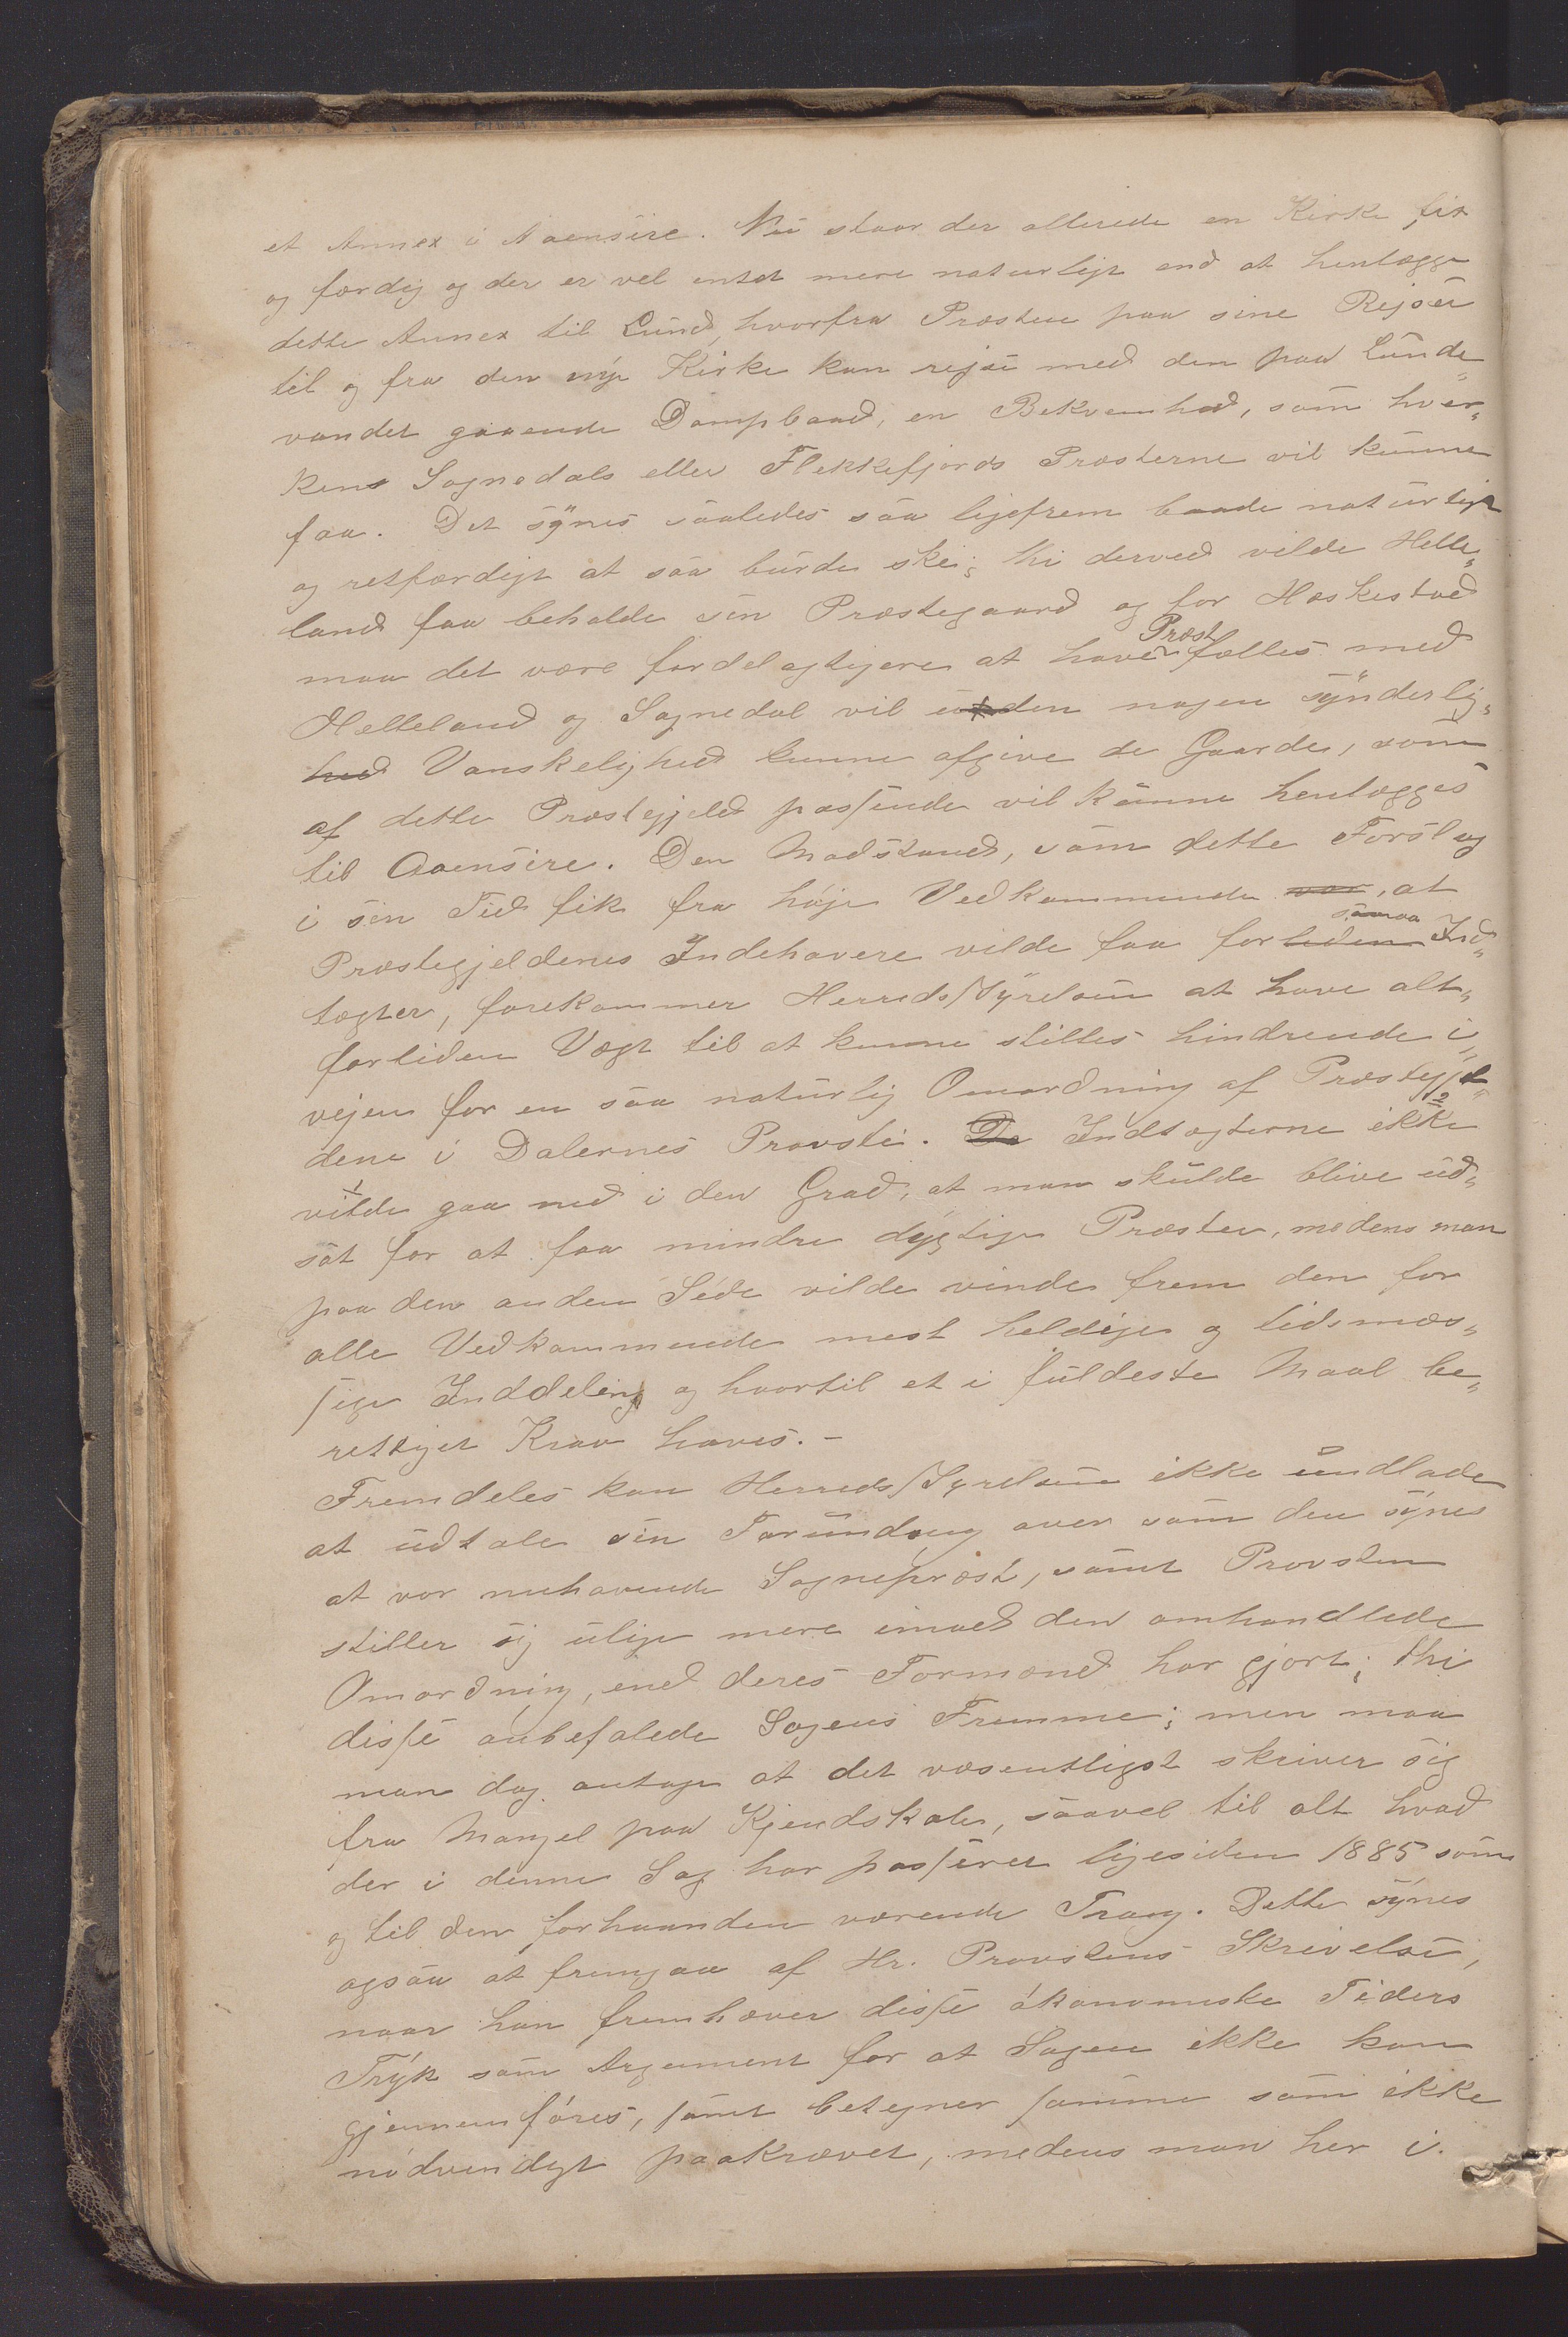 et Annex i Aaensire. Nu staar der allerede en Kirke fix
og færdig og der er vel intet mere naturligt end at henlægge
dette Annex til Lund, hvorfra Præsten paa sine Rejser
til og fra den nye Kirke kan rejse med den paa Lunde„
vandet gaaende Dampbaad, en Bekvemhed, som hver„
ken Sognedals eller Flekkefjords Præsterne vil kunne
faa. Det synes saaledes saa ligefrem baade naturligt
og retfærdigt at saa burde ske; thi derved vilde Helle„
land faa beholde sin Præstegaard og for Heskestad
maa det være fordelagtigere at have Præst fælles med
Helleland og Sognedal vil uden nogen synderlig„
hed Vanskelighed kunne afgive de Gaarde, som
af dette Præstegjeld passende vil kunne henlægges
til Aaensire. Den Modstand, som dette Forslag
i sin Tid fik fra høje Vedkommende var, at
Præstegjeldenes Indehavere vilde faa for liden smaa Ind„
tægter, forekommer Herredsstyrelsen at have alt„
forliden Vægt til at kunne stilles hindrende i
vejen for en saa naturlig Omordning af Præstegjel„
dene i Dalernes Provsti. De Indtægterne ikke 2
1 vilde gaa ned i den Grad, at man skulde blive ud„
sat for at faa mindre dygtige Præster, medens man
paa den anden Side vilde vinde frem den for
alle Vedkommende mest heldige og tidsmæs„
sige Inddeling og hvortil et i fuldeste Maal be„
rettiget Krav haves. –
Fremdeles kan Herredsstyrelsen ikke undlade
at udtale sin Forundring over som den synes
at vor nuhavende Sognepræst, samt Provsten
stiller sig ulige mere imod den omhandlede
Omordning, end deres Formænd har gjort; thi
disse anbefalede Sagens Fremme; men maa
man dog antage at det væsentligst skriver sig
fra Mangel paa Kjendskab, saavel til alt hvad
der i denne Sag har passeret ligesiden 1885 som
og til den forhaanden værende Trang. Dette synes
ogsaa at fremgaa af Hr. Provstens Skrivelse,
naar han fremhæver disse økonomiske Tiders
Tryk som Argument for at Sagen ikke kan
gjennemføres, samt betegner samme som ikke
nødvendigt paakrævet, medens man her i